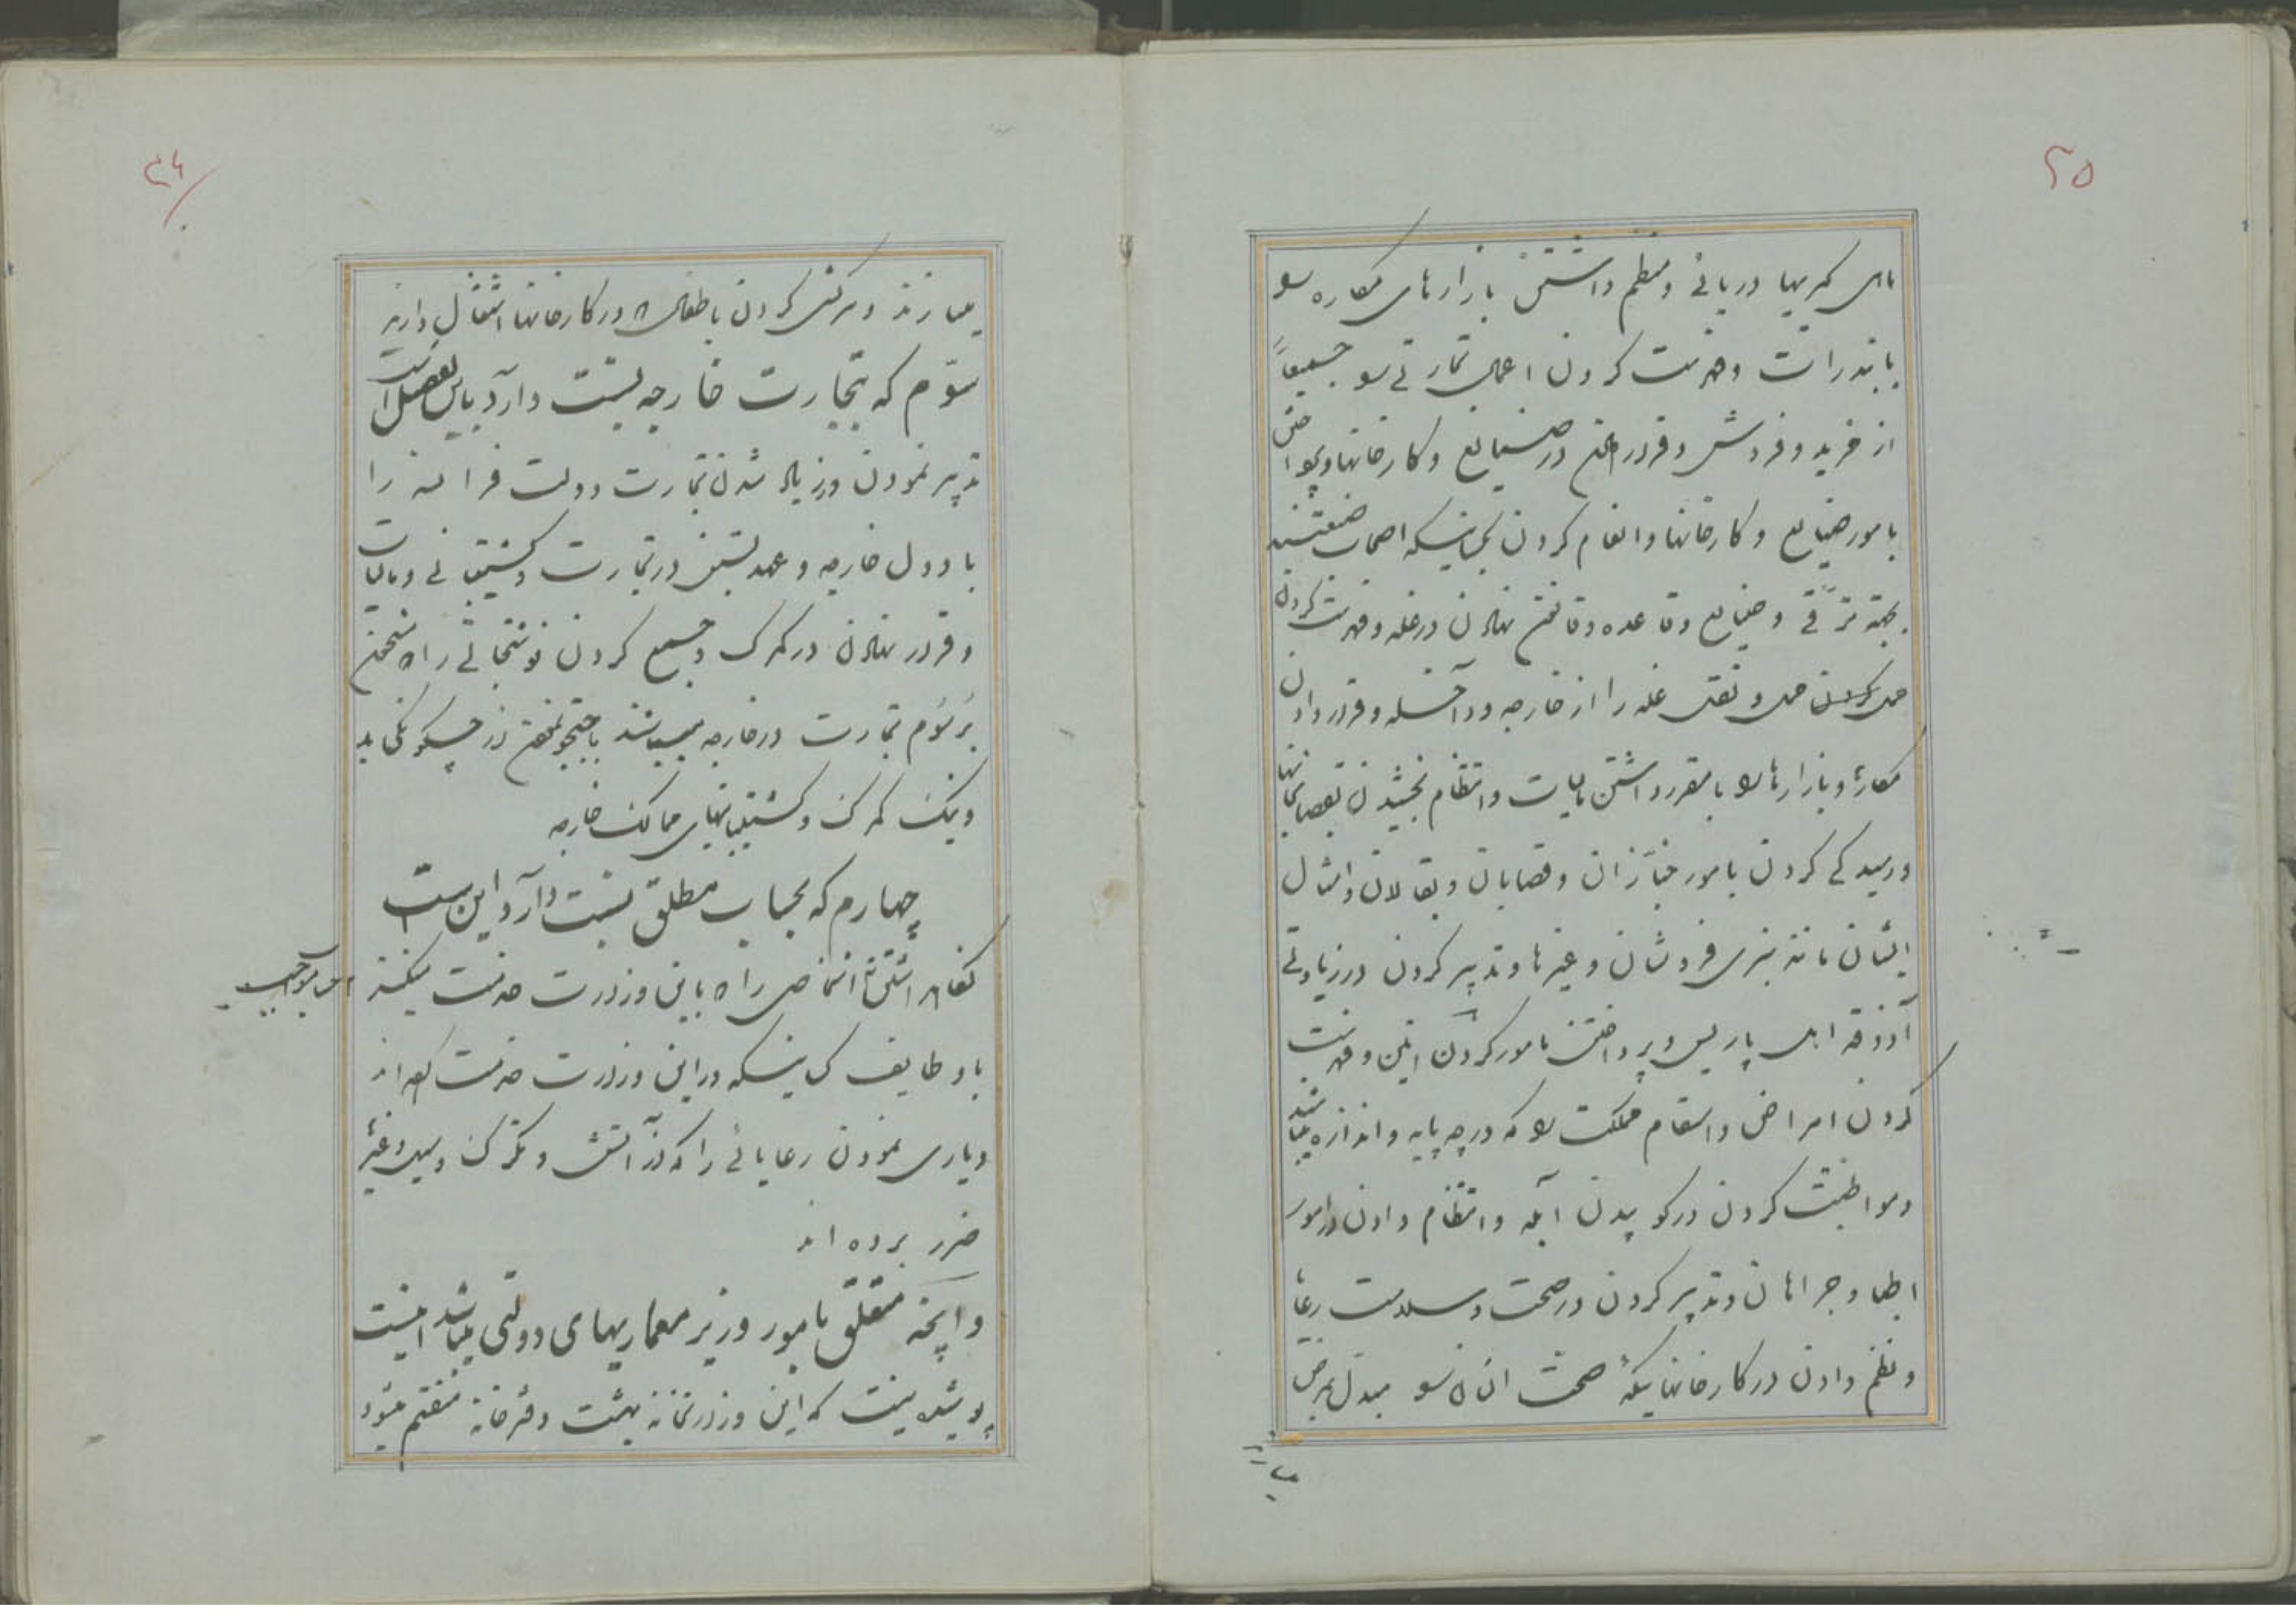 ۲۵
های کمربهیا دریائی و منظم داشتن بازارهای مکاره و
با بندرات و فهرست کردن اعمال تجارتی و جمیعاً
از خرید و فروش و قرار در صنایع و کارخانها و
بامور صنایع و کارخانها و انعام کردن بکسانیکه اصحاب صنعتند
بجهة ترقی و صنایع و قاعده و قانون نهادن در غله و فهرست کردن
حمل و نقل غله را از خارجه و داخله و قرار دادن
مکاره و بازارها را با مقرر داشتن مالیات و انتظام بخشیدن بقصابخانها
و رسیدگی کردن بامور خبازان و قصابان و بقالان و امثال
ایشان مانند سبزی فروشان و غیرها و تدبیر کردن در زیادتی
آذوقه اهل پاریس و پرداختن بامور کردن این و فهرست
کردن امراض و اسقام مملکت را که در چه پایه و اندازه میباشد
و مواظبت کردن در کوبیدن آبله و انتظام دادن در امور
اطبا و جراحان و تدبیر کردن در صحت و سلامت رعایا
و نظم دادن در کارخانهائیکه صحت انسان را مبدل بمرض
۲۶
میسازند و سرکشی کردن باطفالی که در کارخانها اشتغال دارند
سوّم که بتجارت خارجه نسبت دارد باین تفصیل است
تدبیر نمودن در زیاد شدن تجارت دولت فرانسه را
با دول خارجه و عهد بستن در تجارت و کشتیبانی و مالیات
و قرار نهادن در گمرک و جمع کردن نوشتجاتی را که متضمن
برسوم تجارت در خارجه میباشند با جستجو نمودن از چگونگی ید
و نمک گمرک و کشتیبانیهای ممالک خارجه
چهارم که بحساب مطلق نسبت دارد این است
نگاهداشتن اشخاصی را که باین وزارت خدمت میکنند
با وظایف کسانیکه در این وزارت خدمت کرده اند
و یاری نمودن رعایائی را که از آتش و تگرگ و سیل و غیره
ضرر برده اند
و آنچه متعلق بامور وزیر معماریهای دولتی میباشد اینست
پوشیده نیست که این وزارتخانه بهشت دفترخانه منقسم میشود